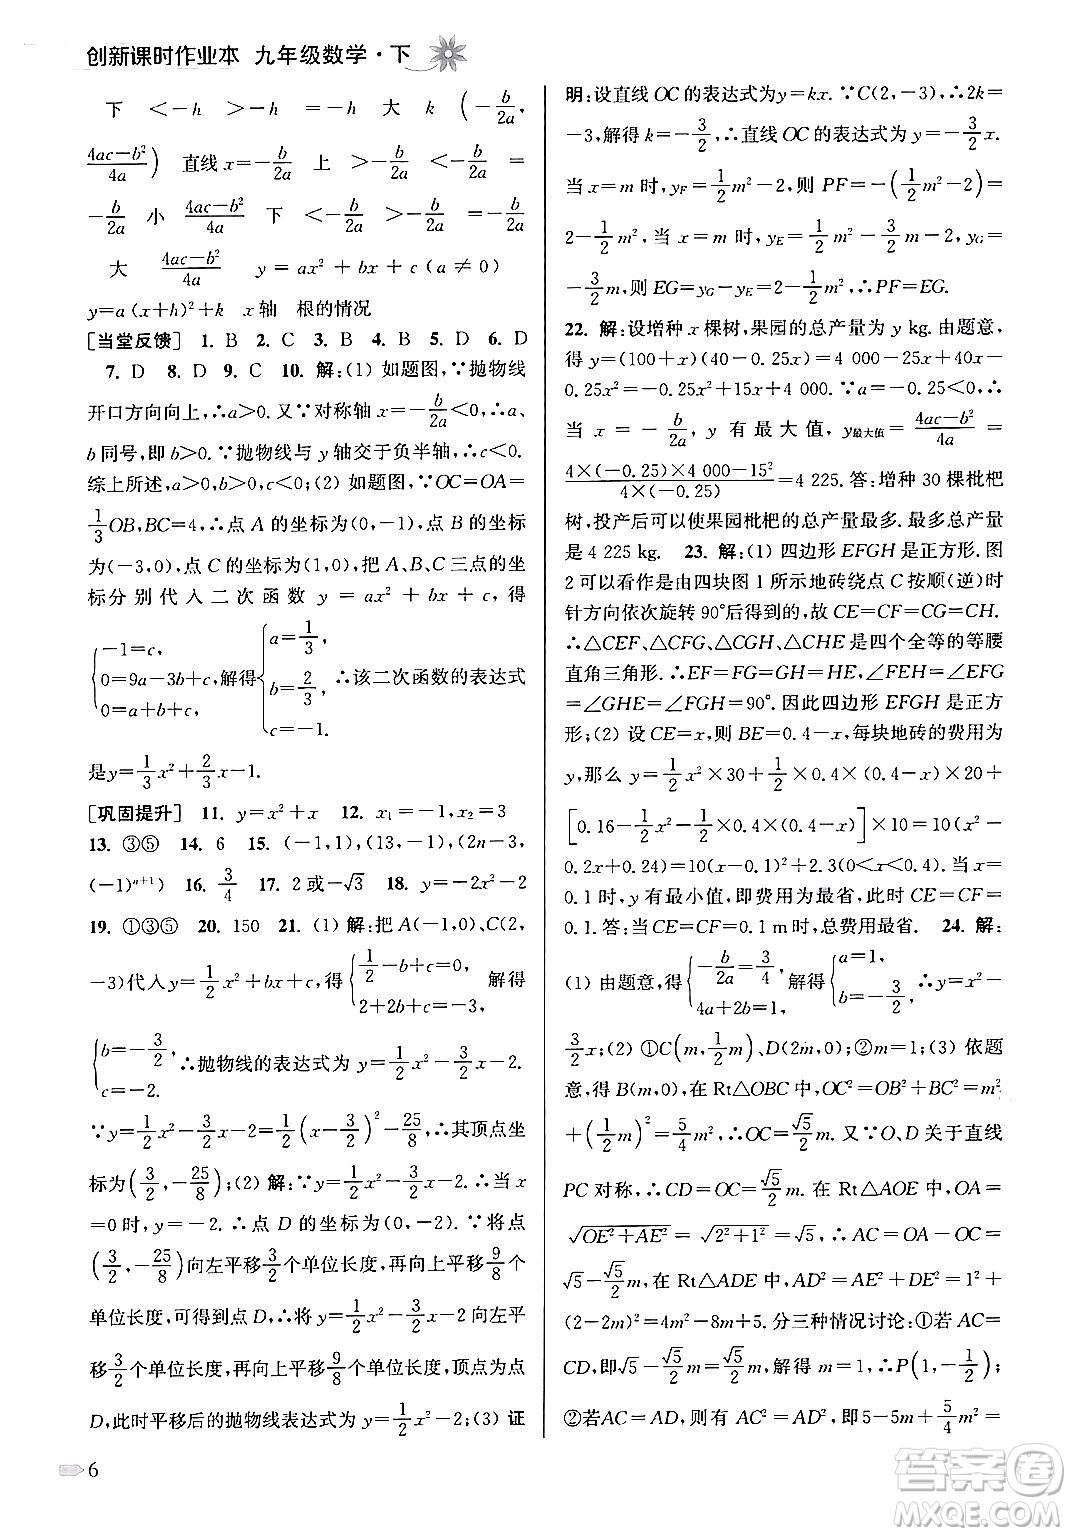 创新课时作业本 九年级数学·下
下 <-h >-h =-h 大 k (-b/2a,
(4ac-b²)/4a) 直线x=-b/2a 上 >-b/2a <-b/2a =
-b/2a 小 (4ac-b²)/4a 下 <-b/2a >-b/2a =-b/2a
大 (4ac-b²)/4a y=ax²+bx+c(a≠0)
y=a(x+h)²+k x轴 根的情况
[当堂反馈] 1. B 2. C 3. B 4. B 5. D 6. D
7. D 8. D 9. C 10. 解:(1) 如题图,∵抛物线
开口方向向上,∴a>0. 又∵对称轴x=-b/2a<0,∴a、
b同号,即b>0. ∵抛物线与y轴交于负半轴,∴c<0.
综上所述,a>0,b>0,c<0;(2) 如题图,∵OC=OA=
1/3OB,BC=4,∴点A的坐标为(0,-1),点B的坐标
为(-3,0),点C的坐标为(1,0),把A、B、C三点的坐
标分别代入二次函数 y=ax²+bx+c,得
{-1=c, 0=9a-3b+c, 0=a+b+c, 解得{a=1/3, b=2/3, c=-1. ∴该二次函数的表达式
是y=1/3x²+2/3x-1.
[巩固提升] 11. y=x²+x 12. x₁=-1,x₂=3
13. ③⑤ 14. 6 15. (-1,1),(13,-1),(2n-3,
(-1)ⁿ⁺¹) 16. 3/4 17. 2或-√3 18. y=-2x²-2
19. ①③⑤ 20. 150 21. (1) 解:把A(-1,0)、C(2,
-3)代入y=1/2x²+bx+c,得{1/2-b+c=0, 2+2b+c=-3, 解得
{b=-3/2, c=-2. ∴抛物线的表达式为y=1/2x²-3/2x-2.
∵y=1/2x²-3/2x-2=1/2(x-3/2)²-25/8,∴其顶点坐
标为(3/2,-25/8);(2) 解:∵y=1/2x²-3/2x-2. 当x
=0时,y=-2. ∴点D的坐标为(0,-2). ∵将点
(3/2,-25/8)向左平移3/2个单位长度,再向上平移9/8个
单位长度,可得到点D,∴将y=1/2x²-3/2x-2向左平
移3/2个单位长度,再向上平移9/8个单位长度,顶点为点
D,此时平移后的抛物线表达式为y=1/2x²-2;(3) 证
6
明:设直线OC的表达式为y=kx. ∵C(2,-3),∴2k=
-3,解得k=-3/2,∴直线OC的表达式为y=-3/2x.
当x=m时,y_F=1/2m²-2,则PF=-(1/2m²-2)=
2-1/2m²,当x=m时,y_E=1/2m²-3/2m-2,y_G=
-3/2m,则EG=y_G-y_E=2-1/2m²,∴PF=EG.
22. 解:设增种x棵树,果园的总产量为y kg. 由题意,
得y=(100+x)(40-0.25x)=4 000-25x+40x-
0.25x²=-0.25x²+15x+4 000. ∵a=-0.25<0,∴
当x=-b/2a,y有最大值,y最大值=(4ac-b²)/4a=
(4×(-0.25)×4 000-15²)/(4×(-0.25))=4 225. 答:增种30棵枇杷
树,投产后可以使果园枇杷的总产量最多. 最多总产量
是4 225 kg. 23. 解:(1) 四边形EFGH是正方形. 图
2可以看作是由四块图1所示地砖绕点C按顺(逆)时
针方向依次旋转90°后得到的,故CE=CF=CG=CH.
∴△CEF、△CFG、△CGH、△CHE是四个全等的等腰
直角三角形. ∴EF=FG=GH=HE,∠FEH=∠EFG
=∠GHE=∠FGH=90°. 因此四边形EFGH是正方
形;(2) 设CE=x,则BE=0.4-x,每块地砖的费用为
y,那么y=1/2x²×30+1/2×0.4×(0.4-x)×20+
[0.16-1/2x²-1/2×0.4×(0.4-x)]×10=10(x²-
0.2x+0.24)=10(x-0.1)²+2.3(0<x<0.4). 当x=
0.1时,y有最小值,即费用为最省,此时CE=CF=
0.1. 答:当CE=CF=0.1 m时,总费用最省. 24. 解:
(1) 由题意,得{-b/2a=3/4, 4a+2b=1, 解得{a=1, b=-3/2, ∴y=x²-
3/2x;(2) ①C(m,1/2m)、D(2m,0);②m=1;(3) 依题
意,得B(m,0),在Rt△OBC中,OC²=OB²+BC²=m²
+(1/2m)²=5/4m²,∴OC=√5/2m. 又∵O、D关于直线
PC对称,∴CD=OC=√5/2m. 在Rt△AOE中,OA=
√(OE²+AE²)=√(2²+1²)=√5,∴AC=OA-OC=
√5-√5/2m,在Rt△ADE中,AD²=AE²+DE²=1²+
(2-2m)²=4m²-8m+5. 分三种情况讨论:①若AC=
CD,即√5-√5/2m=√5/2m,解得m=1,∴P(1,-1/2);
②若AC=AD,则有AC²=AD²,即5-5m+5/4m²=
答案圈
MXQE.COM